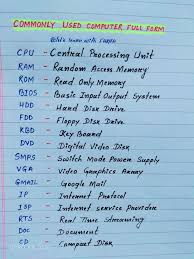 COMMONLY USED COMPUTER FULL FORM
CPU - Central Processing Unit
RAM - Random Access Memory
ROM - Read Only Memory
BIOS - Basic Input Output System
HDD - Hard Disk Drive
FDD - Floppy Disk Drive
KBD - Key Board
DVD - Digital Video Disk
SMPS - Switch Mode Power Supply
VGA - Video Graphics Array
GMAIL - Google Mail
IP - Internet Protocol
ISP - Internet service Provider
RTS - Real Time Streaming
DOC - Document
CD - Compact Disk